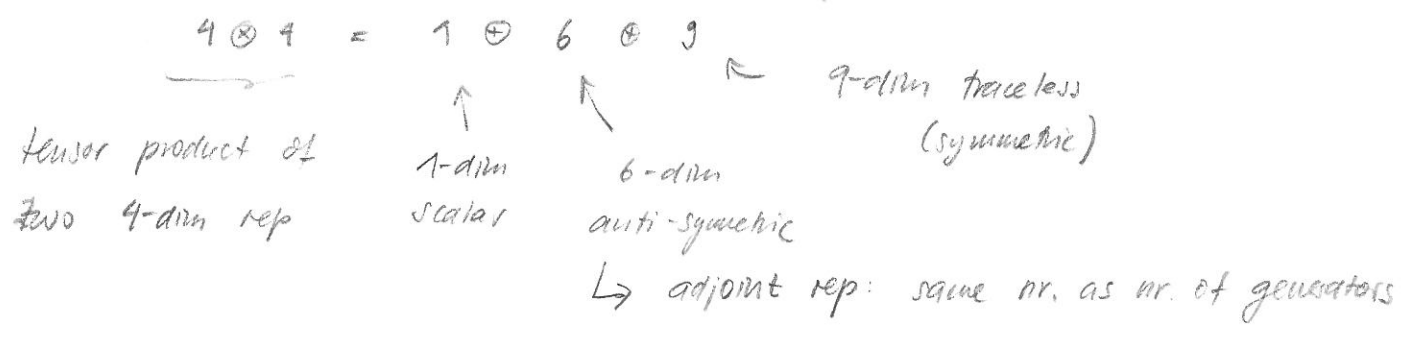 4 ⊗ 4 = 1 ⊕ 6 ⊕ 9
9-dim traceless
(symmetric)
tensor product of
two 4-dim rep
1-dim
scalar
6-dim
anti-symetric
↳ adjoint rep: same nr. as nr. of generators